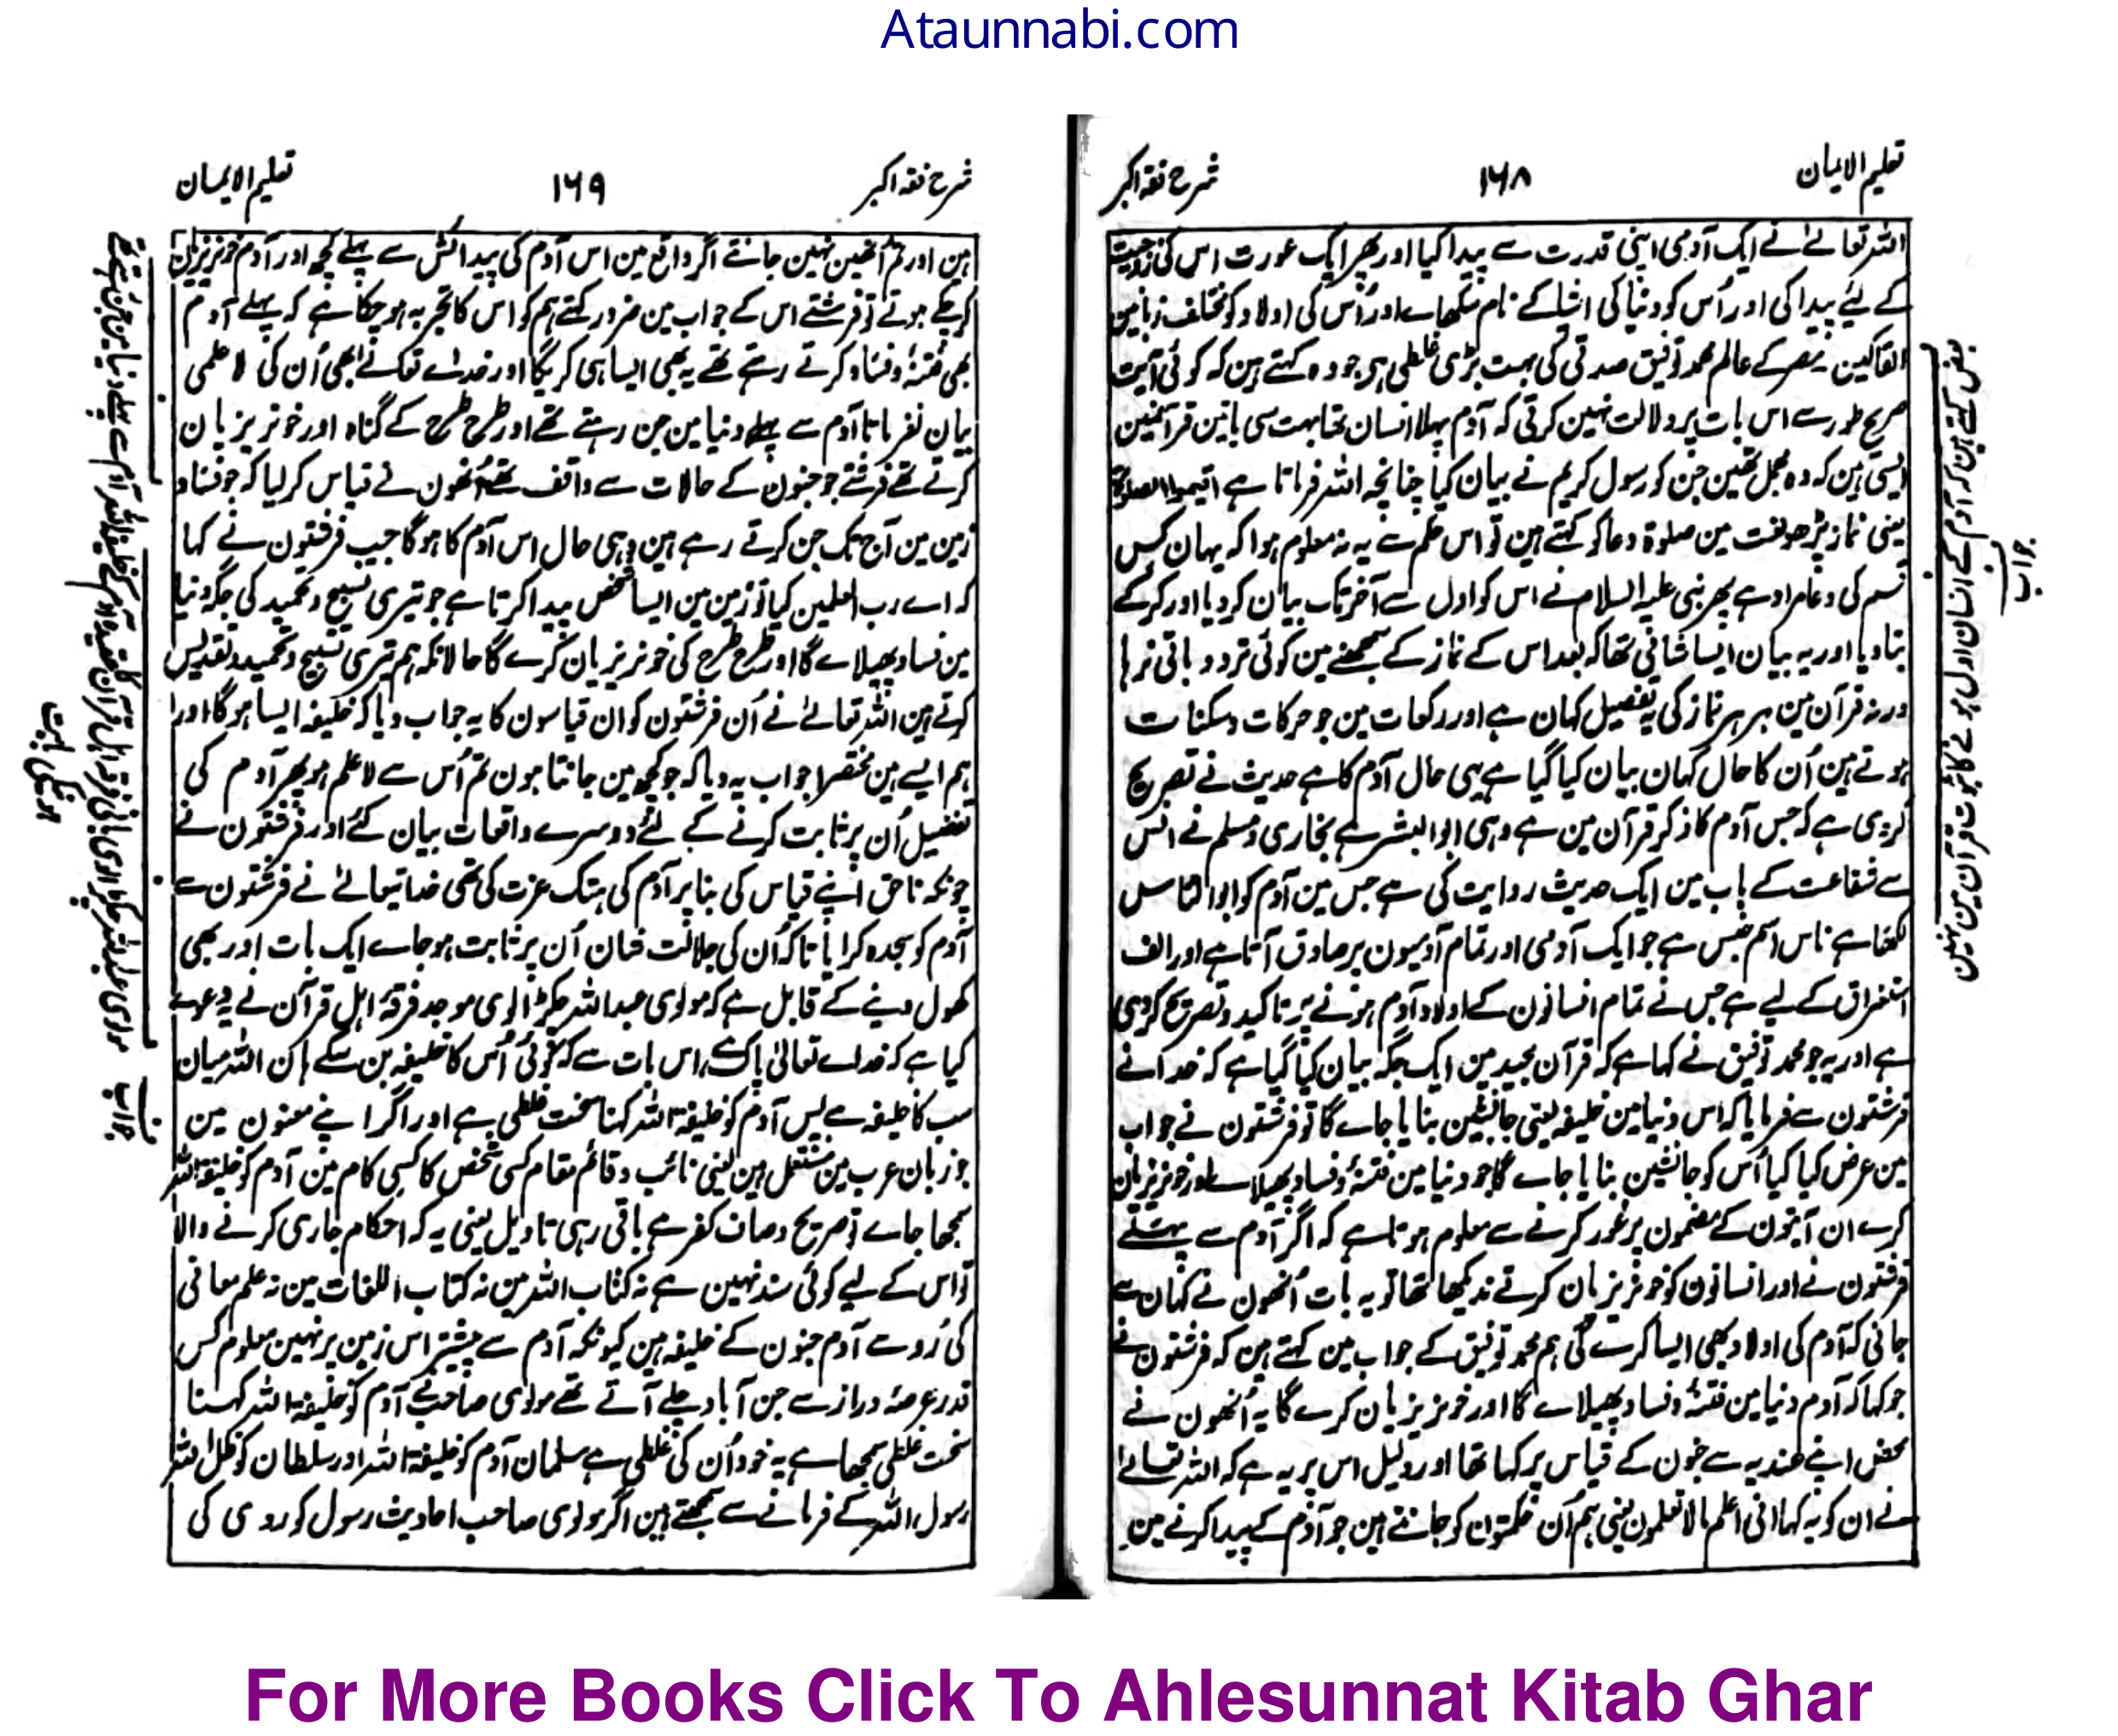 Ataunnabi.com
تعلیم الایمان
۱۶۸
شرح فقہ اکبر
اللہ تعالےٰ نے ایک آدمی اپنی قدرت سے پیدا کیا اور پھر ایک عورت اس کی زوجیت
کے لیئے پیدا کی اور اُس کو دنیا کی اشیا کے نام سکھاے اور اُس کی اولاد کو مختلف زبانین
القا کین مصر کے عالم محمد توفیق صدقی کی بہت بڑی غلطی ہی جو وہ کہتے ہین کہ کوئی آیت
صریح طور سے اس بات پر دلالت نہین کرتی کہ آدم پہلا انسان تھا بہت سی باتین قرآنمین
ایسی ہین کہ وہ مجمل تھین جن کو رسول کریم نے بیان کیا چنانچہ اللہ فرماتا ہے اقیموا الصلوٰۃ
یعنی نماز پڑھو لغت مین صلوۃ دعا کو کہتے ہین تو اس حکم سے یہ نہ معلوم ہوا کہ یہان کس
قسم کی دعا مراد ہے پھر نبی علیہ السلام نے اس کو اول سے آخر تک بیان کر دیا اور کر کے
بتا دیا اور یہ بیان ایسا شافی تھا کہ بعد اس کے نماز کے سمجھنے مین کوئی تردد باقی نرہا
ورنہ قرآن مین ہر ہر نماز کی یہ تفصیل کہان ہے اور رکعات مین جو حرکات و سکنات
ہوتے ہین اُن کا حال کہان بیان کیا گیا ہے یہی حال آدم کا ہے حدیث نے تصریح
کردی ہے کہ جس آدم کا ذکر قرآن مین ہے وہی ابوالبشر ہے بخاری و مسلم نے انس
سے شفاعت کے باب مین ایک حدیث روایت کی ہے جس مین آدم کو ابوالناس
لکھا ہے ناس اسم جنس ہے جو ایک آدمی اور تمام آدمیون پر صادق آتا ہے اور الف
استغراق کے لیے ہے جس نے تمام انسانون کے اولاد آدم ہونے پر تاکید و تصریح کردی
ہے اور یہ جو محمد توفیق نے کہا ہے کہ قرآن مجید مین ایک جگہ بیان کیا گیا ہے کہ خدا نے
فرشتون سے فرمایا کہ اس دنیا مین خلیفہ یعنی جانشین بنایا جاے گا تو فرشتون نے جواب
مین عرض کیا کیا اُس کو جانشین بنایا جاے گا جو دنیا مین فتنہ و فساد پھیلاے اور خونریزیان
کرے ان آیتون کے مضمون پر غور کرنے سے معلوم ہوتا ہے کہ اگر آدم سے پہلے
فرشتون نے اور انسانون کو خونریزیان کرتے ندیکھا تھا تو یہ بات اُنھون نے کہان سے
جانی کہ آدم کی اولاد بھی ایسا کرے گی ہم محمد توفیق کے جواب مین کہتے ہین کہ فرشتون نے
جو کہا کہ آدم دنیا مین فتنہ و فساد پھیلاے گا اور خونریزیان کرے گا یہ اُنھون نے
محض اپنے عندیہ سے جنون کے قیاس پر کہا تھا اور دلیل اس پر یہ ہے کہ اللہ تعالےٰ
نے ان کو یہ کہا انی اعلم مالا تعلمون یعنی ہم اُن حکمتون کو جانتے ہین جو آدم کے پیدا کرنے مین
بعض کہتے ہین کہ آدم کے انسان اول ہونے کا ثبوت قرآن مین نہین
جواب
شرح فقہ اکبر
۱۶۹
تعلیم الایمان
ہین اور تم اُنھین نہین جانتے اگر واقع مین اس آدم کی پیدائش سے پہلے کچھ اور آدم خونریزیان
کر چکے ہوتے تو فرشتے اس کے جواب مین ضرور کہتے ہم کو اس کا تجربہ ہو چکا ہے کہ پہلے آدم
بھی فتنہ و فساد کرتے رہتے تھے یہ بھی ایسا ہی کریگا اور خداے تعالےٰ بھی اُن کی لاعلمی
بیان نفرماتا آدم سے پہلے دنیا مین جن رہتے تھے اور طرح طرح کے گناہ اور خونریزیان
کرتے تھے فرشتے جو جنون کے حالات سے واقف تھے اُنھون نے قیاس کر لیا کہ جو فساد
زمین مین آج تک جن کرتے رہے ہین وہی حال اس آدم کا ہوگا جب فرشتون نے کہا
کہ اے رب العلمین کیا تو زمین مین ایسا شخص پیدا کرتا ہے جو تیری تسبیح و تحمید کی جگہ دنیا
مین فساد پھیلاے گا اور طرح طرح کی خونریزیان کرے گا حالانکہ ہم تیری تسبیح و تحمید و تقدیس
کرتے ہین اللہ تعالےٰ نے اُن فرشتون کو ان قیاسون کا یہ جواب دیا کہ خلیفہ ایسا ہوگا اور
ہم ایسے ہین مختصر جواب یہ دیا کہ جو کچھ مین جانتا ہون تم اُس سے لاعلم ہو پھر آدم کی
تفضیل اُن پر ثابت کرنے کے لئے دوسرے واقعات بیان کئے اور فرشتون نے
چونکہ ناحق اپنے قیاس کی بنا پر آدم کی ہتک عزت کی تھی خدا تعالےٰ نے فرشتون سے
آدم کو سجدہ کرایا تاکہ اُن کی جلالت شان اُن پر ثابت ہو جاے ایک بات اور بھی
کھول دینے کے قابل ہے کہ مولوی عبداللہ چکڑالوی موجد فرقۂ اہل قرآن نے یہ دعوے
کیا ہے کہ خداے تعالیٰ پاک ہے اس بات سے کہ کوئی اُس کا خلیفہ بن سکے ہان اللہ میان
سب کا خلیفہ ہے پس آدم کو خلیفۃ اللہ کہنا سخت غلطی ہے اور اگر اپنے معنون مین
جو زبان عرب مین مستعمل ہین یعنی نائب و قائم مقام کسی شخص کا کسی کام مین آدم کو خلیفۃ اللہ
سمجھا جاے تو صریح و صاف کفر ہے باقی رہی تاویل یعنی یہ کہ احکام جاری کرنے والا
تو اس کے لیے کوئی سند نہین ہے نہ کتاب اللہ مین نہ کتاب اللغات مین نہ علم معانی
کی رُو سے آدم جنون کے خلیفہ ہین کیونکہ آدم سے پیشتر اس زمین پر نہین معلوم کس
قدر عرصۂ دراز سے جن آباد چلے آتے تھے مولوی صاحب نے آدم کو خلیفۃ اللہ کہنا
سخت غلطی سمجھا ہے یہ خود اُن کی غلطی ہے مسلمان آدم کو خلیفۃ اللہ اور سلطان کو ظل اللہ
رسول اللہ کے فرمانے سے سمجھتے ہین اگر مولوی صاحب احادیث رسول کو ردی کی
آدم سے پہلے دنیا مین جن رہتے تھے
مولوی عبداللہ چکڑالوی بانی فرقہ اہل قرآن
کی بابت
جواب
For More Books Click To Ahlesunnat Kitab Ghar